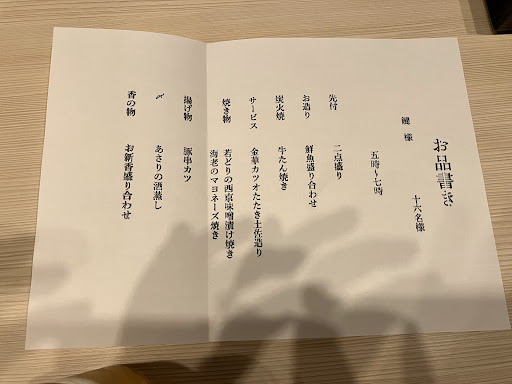 お品書き
十六名様
鍵 様
五時〜七時
先付 二点盛り
お造り 鮮魚盛り合わせ
炭火焼 牛たん焼き
サービス 金華カツオたたき土佐造り
焼き物 若どりの西京味噌漬け焼き
海老のマヨネーズ焼き
揚げ物 豚串カツ
〆 あさりの酒蒸し
香の物 お新香盛り合わせ